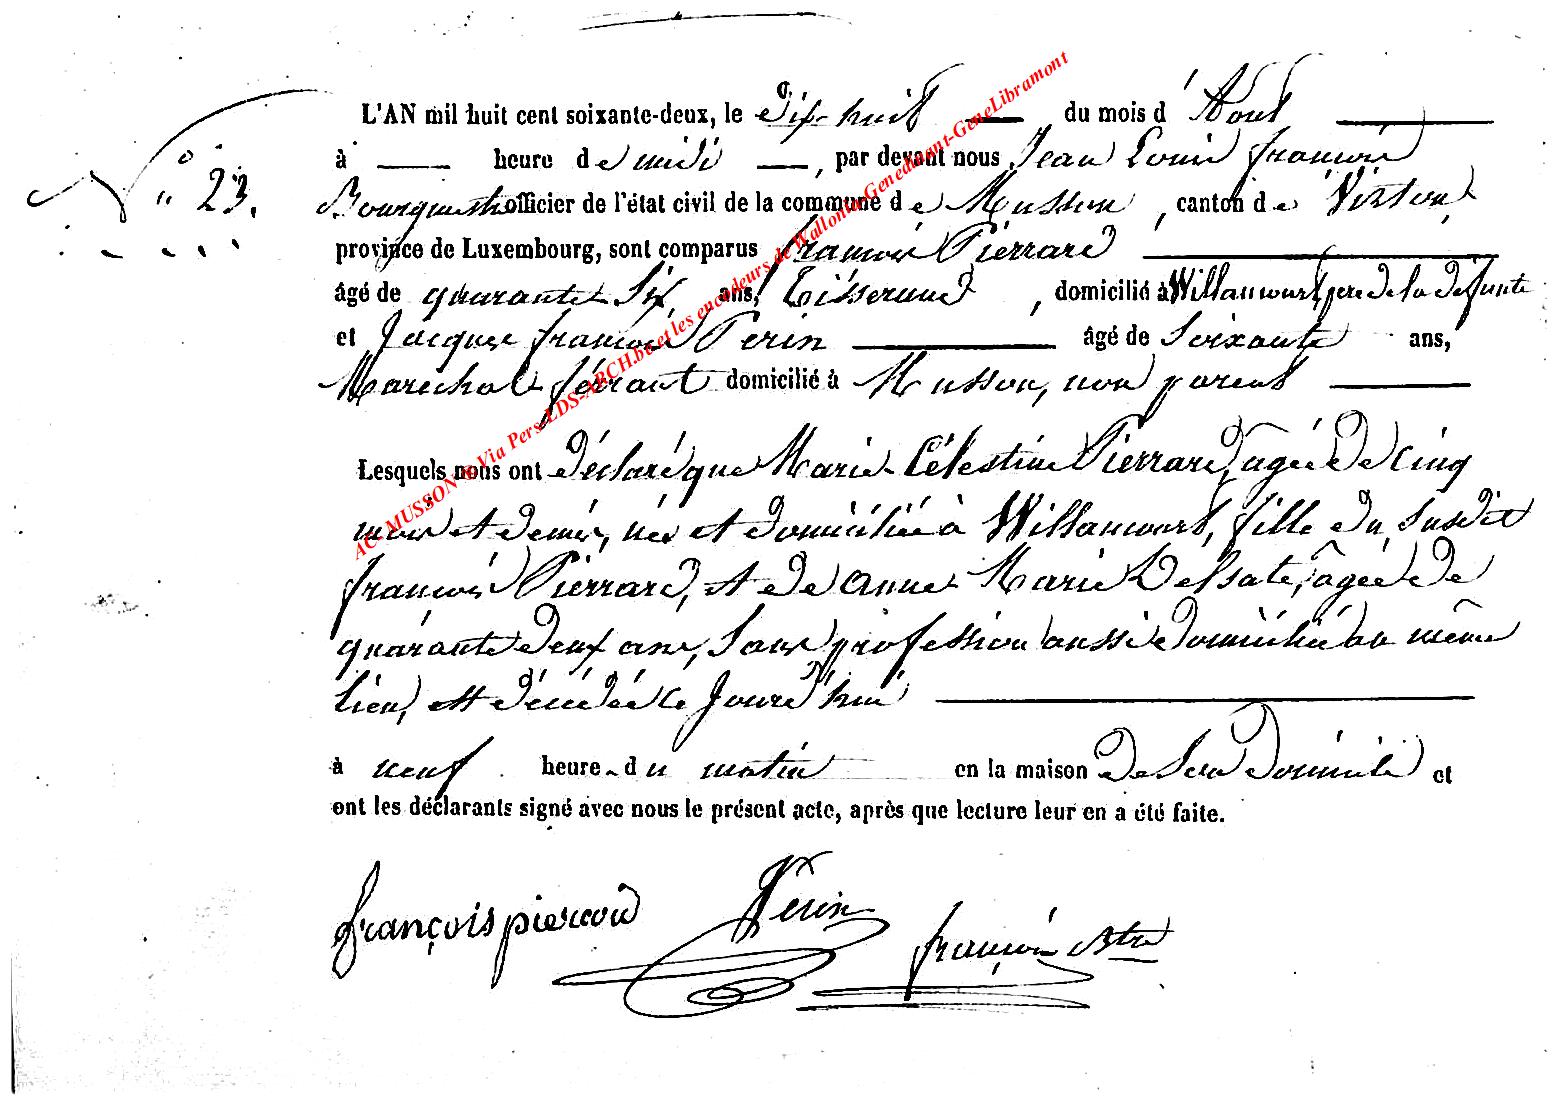 L'AN mil huit cent soixante-deux, le dix-huit du mois d'Aout
à heure de midi, par devant nous Jean Louis françois
N° 23. officier de l'état civil de la commune de Musson, canton de Virton
province de Luxembourg, sont comparus françois Pierrard
âgé de quarante Six ans, Tisserand, domicilié à Willancourt pere de la défunte
et Jacques françois Perin âgé de Soixante ans,
Maréchal férant domicilié à Musson, non parent
Lesquels nous ont déclaré que Marie Célestine Pierrard, agée de cinq
mois et demis, née et domiciliée à Willancourt, fille du susdit
françois Pierrard, et de Anne Marie Delsate, agée de
quarante deux ans, sans profession aussi domiciliée au même
lieu, est décédée ce jourd'hui
à neuf heure du matin en la maison de Son domicile et
ont les déclarants signé avec nous le présent acte, après que lecture leur en a été faite.
françois pierrard Perin françois
AC-MUSSON Via Pers-LDS-ARCH.be et les encodeurs de Wallonia-Genedinant-GeneLibramont